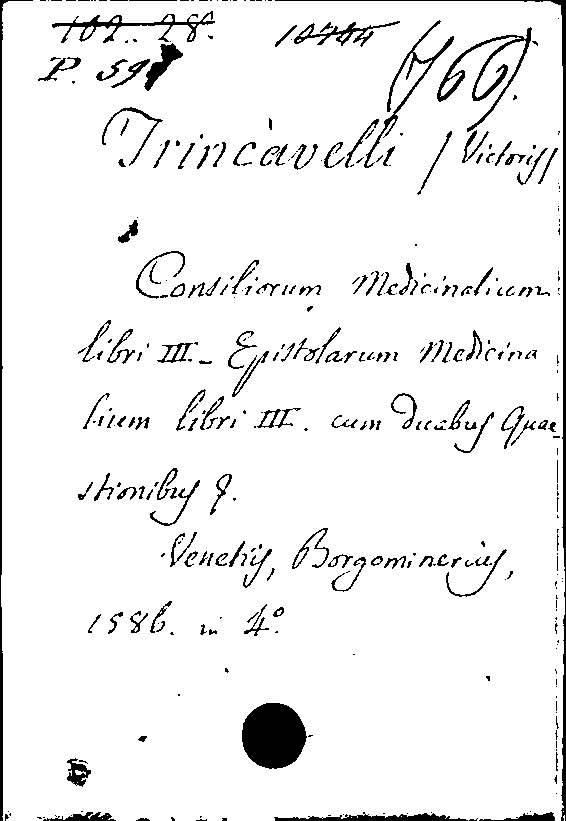 102. 28.
10744
P. 59
(766).
Trincàvelli / Victoris/
Consiliorum Medicinalium
libri III. - Epistolarum Medicina
lium libri III. cum duabus Quae
stionibus &.
Venetiis, Borgominerius,
1586. in 4º.